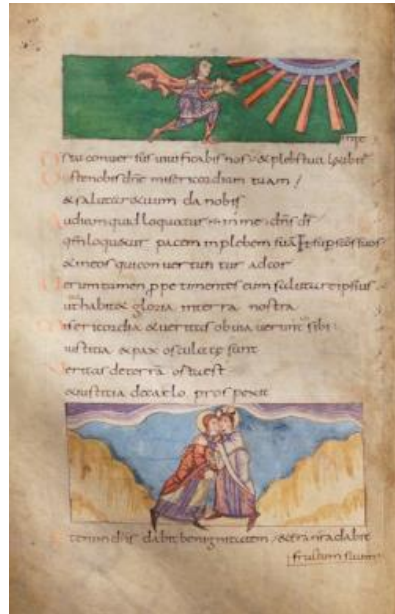 inte
Ds tu conuersus uiuificabis nos & plebs tua laetabit
Ostenobis dne misericordiam tuam /
& salutare tuum da nobis
Audiam quid loquatur in me dns ds
qm loquetur pacem in plebem suā & sup scos suos
& in eos qui conuertuntur ad cor
Uerumtamen ppe timentes eum salutare ipsius
ut habit& gloria in terra nostra
Misericordia & ueritas obuiauerunt sibi:
iustitia & pax osculate sunt
Ueritas de terra orta est
& iustitia de caelo prospexit
Etenim dns dabit benignitatem & terra nra dabit
fructum suum